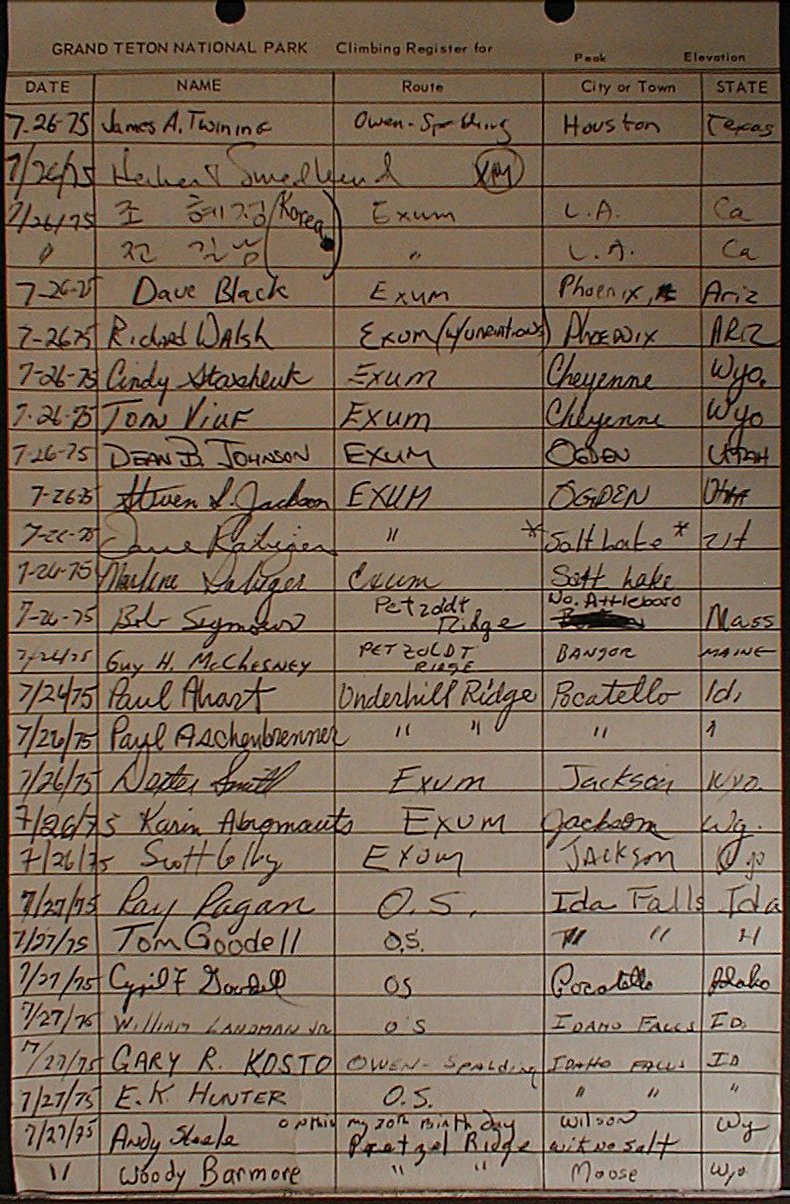 GRAND TETON NATIONAL PARK Climbing Register for Peak Elevation
DATE NAME Route City or Town STATE
7-26-75 James A. Twining Owen-Spalding Houston Texas
7/26/75 Herbert
7/26/75 조 혜정 (Korea) Exum L.A. Ca
" 전 길남 " L.A. Ca
7-26-75 Dave Black Exum Phoenix, Ariz
7-26 75 Richard Walsh Exum (w/variations) Phoenix ARIZ
7-26-75 Cindy Exum Cheyenne Wyo.
7-26-75 Tom Exum Cheyenne Wyo
7-26-75 DEAN B. JOHNSON EXUM OGDEN UTAH
7-26-75 Steven L. Jackson EXUM OGDEN Utah
7-26-75 " * Salt Lake * Ut
7-26-75 Marlene Exum Salt Lake
7-26-75 Bob Seymour Petzoldt Ridge No. Attleboro Mass
7/26/75 GUY H. McCHESNEY PETZOLDT RIDGE BANGOR MAINE
7/26/75 Paul Ahart Underhill Ridge Pocatello Id.
7/26/75 Paul Aschenbrenner " " " "
7/26/75 Dexter Smith Exum Jackson Wyo.
7/26/75 Karin Exum Jackson Wy.
7/26/75 Scott Exum JACKSON Wyo
7/27/75 Ray Pagan O.S. Ida Falls Ida
7/27/75 Tom Goodell O.S. " " "
7/27/75 Cyril F Goodell OS Pocatello Idaho
7/27/75 WILLIAM LANDMAN JR O S IDAHO FALLS ID.
7/27/75 GARY R. KOSTO OWEN-Spalding IDAHO FALLS ID
7/27/75 E.K. HUNTER O.S. " " "
7/27/75 Andy Steele on this my 30th Birthday Pretzel Ridge wit no salt Wilson Wy
" Woody Barmore " " Moose Wyo